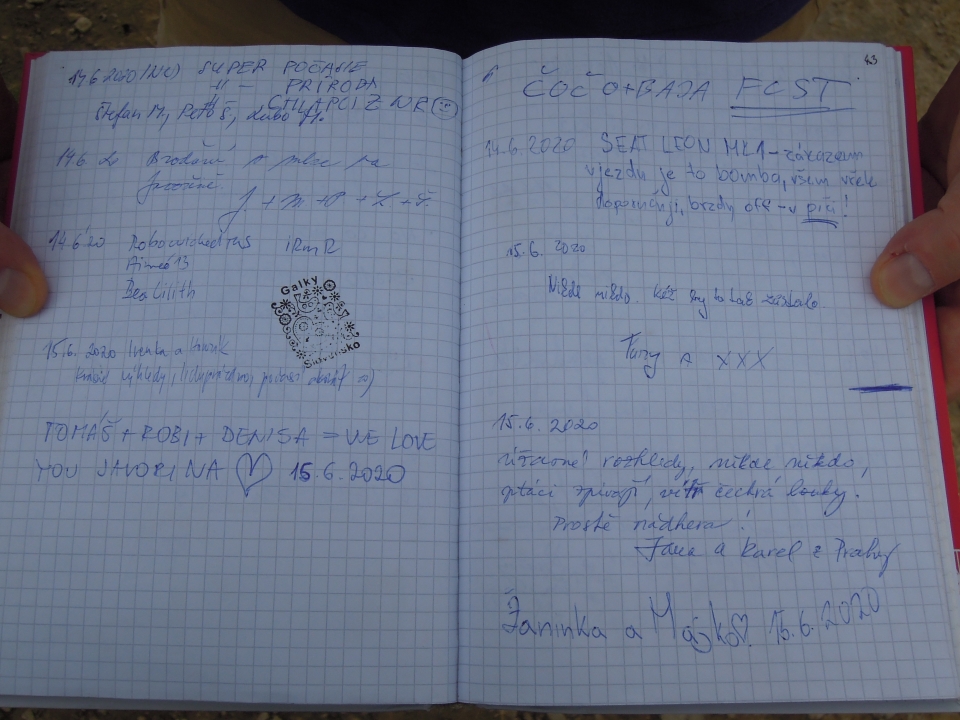 14.6.2020 (NR) SUPER POČASIE
-"- PRÍRODA
CHLAPCI Z NR
Štefan M., Peťo Š., Ľubo
14.6.20
14.6.20 Robowickedttus iRmR
Aimeé13
Bea Lilith
Galky
Slovensko
15.6. 2020 Ivanka a
výhledy, liduprázdno, :)
TOMÁŠ + ROBI + DENISA = WE LOVE
YOU JAVORINA ♡ 15.6.2020
43
ČOČO + BAJA FCST
14.6.2020 SEAT LEON MK1 - zákazem
vjezdu je to bomba, všem
doporučuji, brzdy off - v piči!
15.6. 2020
Nikde nikdo. Kéž by to tak zůstalo
Fany a XXX
15.6.2020
úžasné rozhledy, nikde nikdo,
ptáci zpívají, vítr čechrá louky.
Prostě nádhera!
Jana a Karel z Prahy
Žaninka a Majko ♡ 15.6.2020